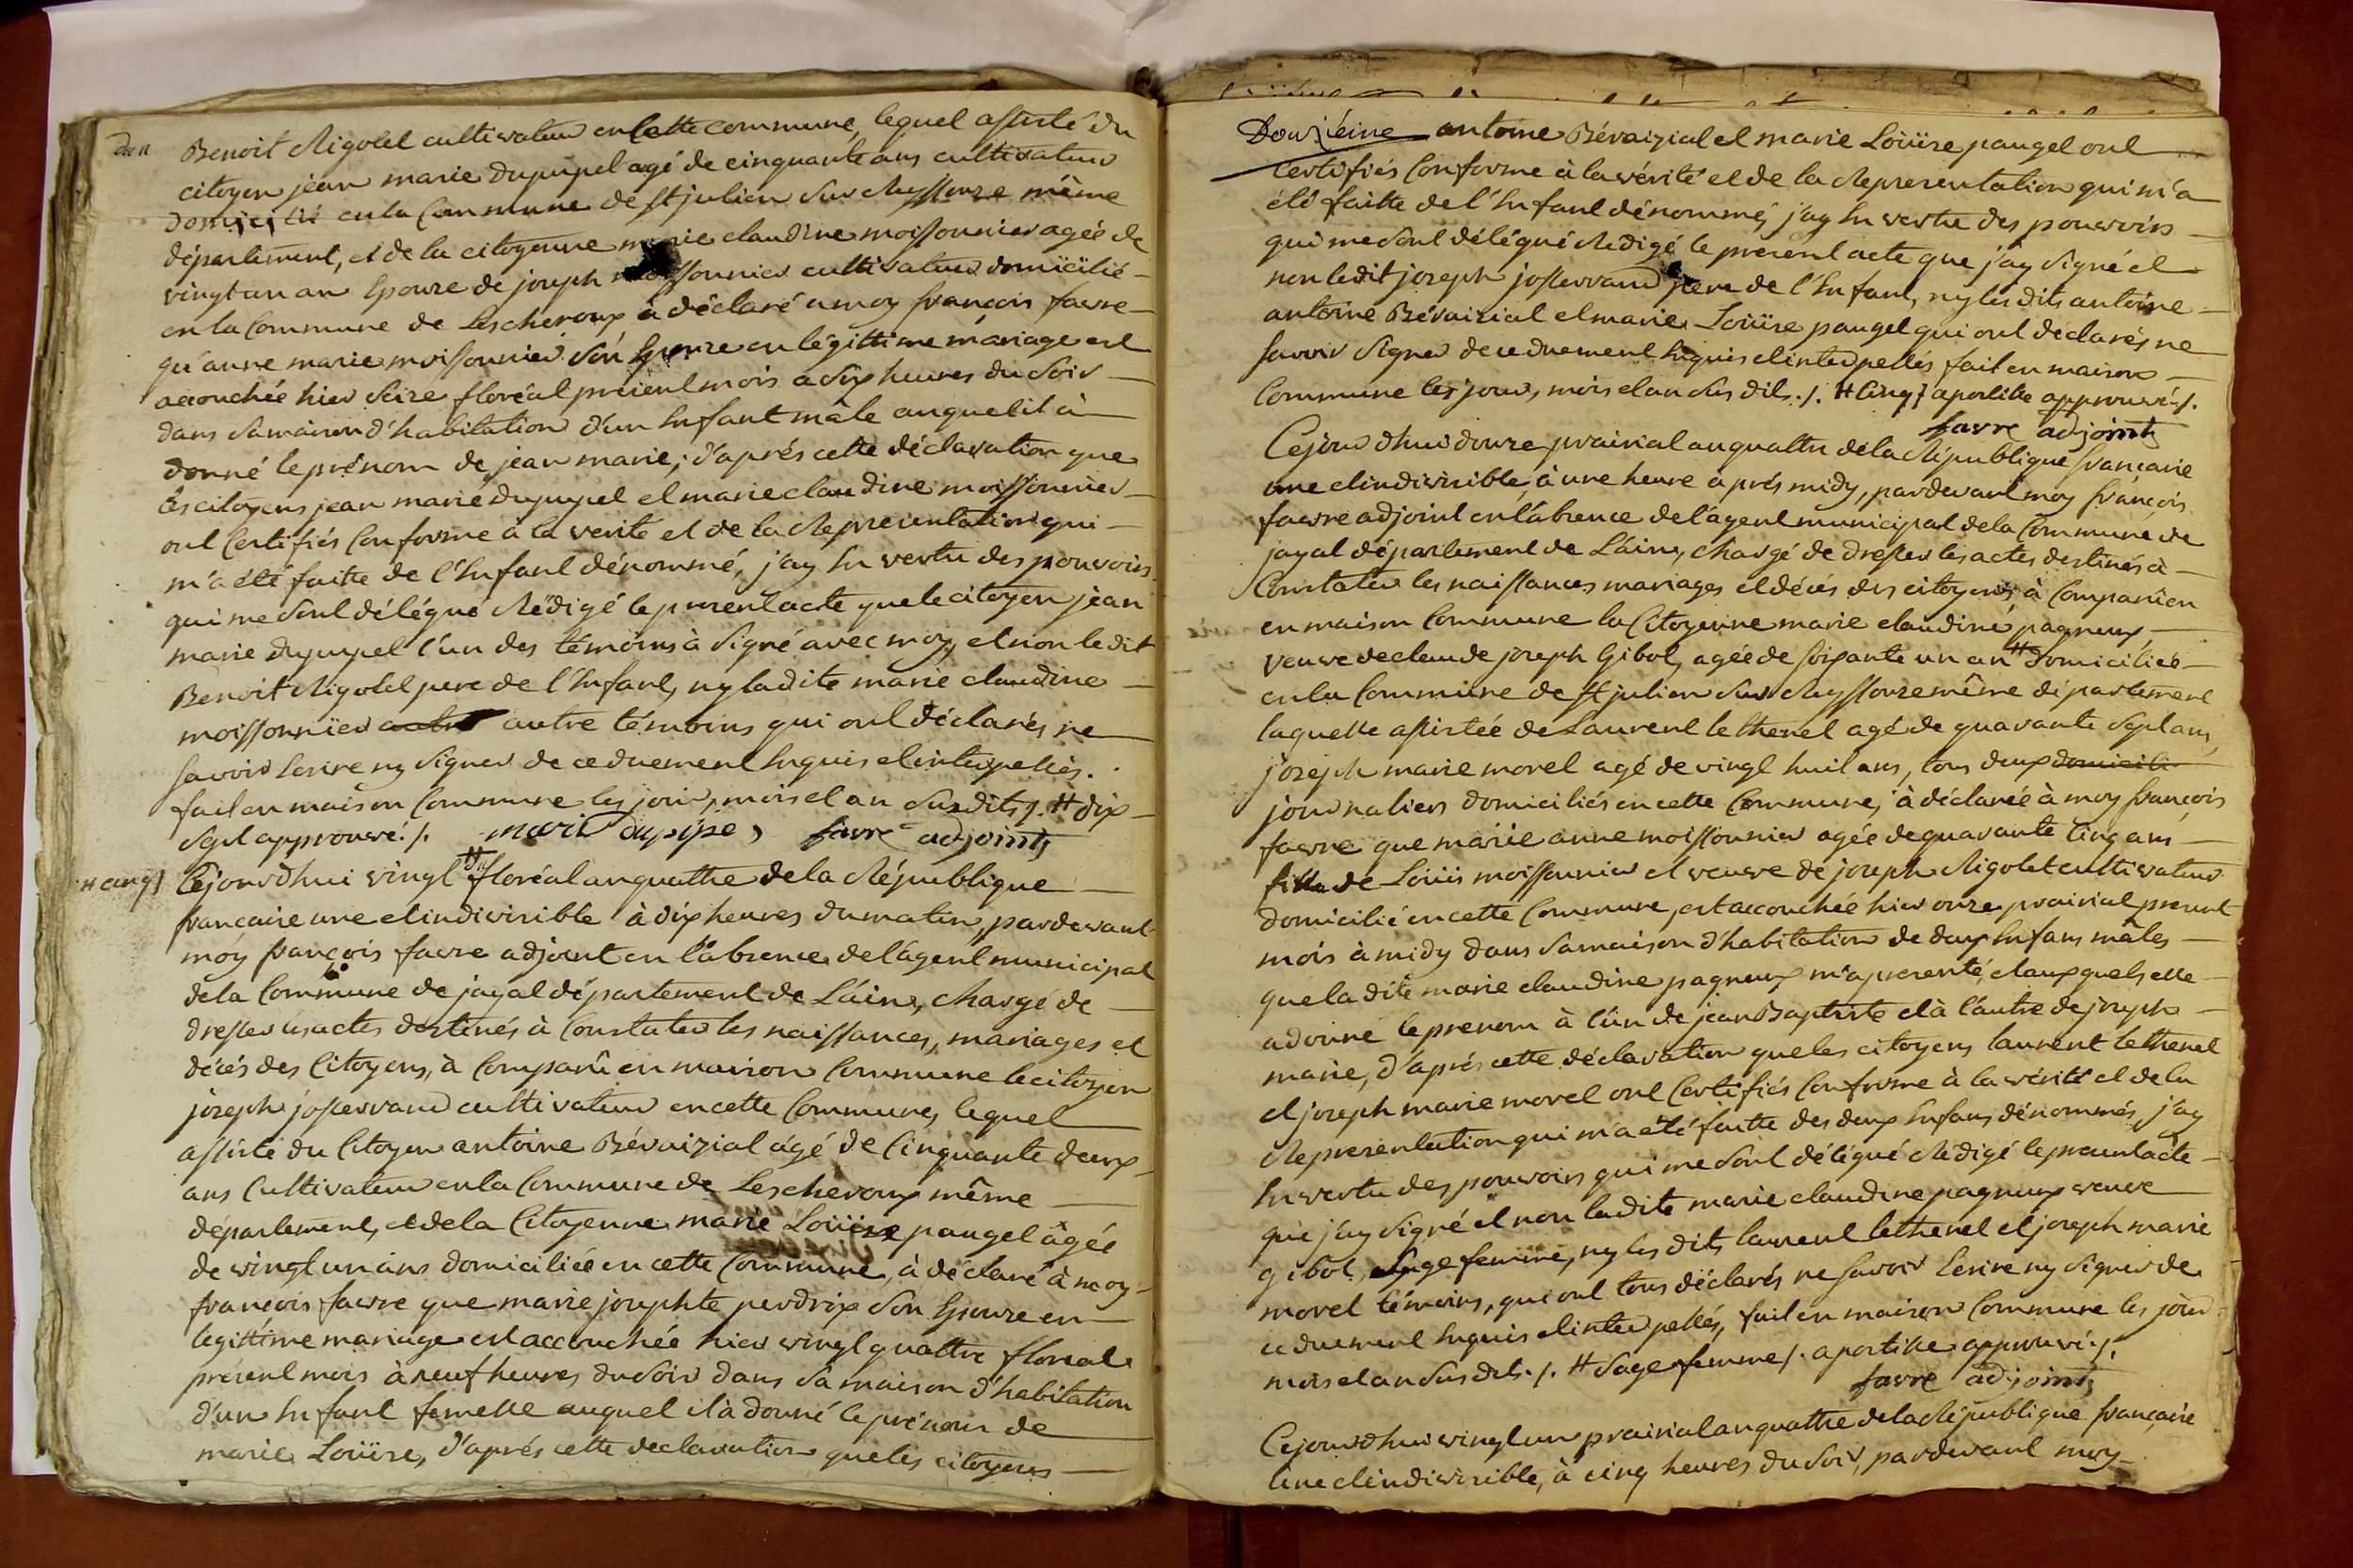 Benoit Rigolet cultivateur en Cette commune, lequel assisté du
citoyen jean marie dupupet agé de cinquante ans cultivateur
domicilié en la Commune de st julien sur Reyssouze même
département, et de la citoyenne marie claudine moissonnier agée de
vingt un an Epouze de joseph moissonnier cultivateur domicilié
en la Commune de Lescheroux à déclaré a moy françois favre
qu'anne marie moissonnier Son Epouze en légittime mariage est
accouchée hier Seize floréal présent mois a Six heures du Soir
dans Sa maison d'habitation d'un Enfant mâle auquel il à
donné le prénom de jean marie; d'aprés cette déclaration que
les citoyens jean marie dupupet et marie claudine moissonnier
ont Certifiés Conforme à la verité et de la Representation qui
m'a été faitte de l'Enfant dénommé, j'ay En vertu des pouvoirs
qui me Sont délégué Rédigé le present acte que le citoyen jean
marie dupupet l'un des témoins à Signé avec moy, et non le dit
Benoit Rigolet pere de l'Enfant, ny ladite marie claudine
moissonnier autre témoins qui ont déclarés ne
Savoir Ecrire ny Signer de ce duement Enquis et interpellés.
fait en maison Commune les jour, mois et an Susdits ./. # dix
Sept approuvé ./. favre adjoint
# cinq} Cejourdhui vingt # floréal an quattre de la République
françaize une et indivisible à dix heures du matin, pardevant
moy françois favre adjoint en l'absence de l'agent municipal
de la Commune de jayat département de L'ain, chargé de
dresser les actes destinés à Constater les naissances, mariages et
décés des Citoyens, à Comparû en maison Commune le citoyen
joseph josserrand cultivateur en cette Commune, lequel
assisté du Citoyen antoine Bévaizial âgé de Cinquante deux
ans Cultivateur en la Commune de Lescheroux même
département, et de la Citoyenne marie Loüise paugel âgée
de vingt un ans domiciliée en cette Commune, à déclaré à moy
françois favre que marie josephte perdrix Son Epouze en
legittime mariage est accouchée hier vingt quattre floréal
présent mois à neuf heures du Soir dans Sa maison d'habitation
d'un Enfant femelle auquel il à donné le prénom de
marie Loüise, d'aprés cette declaration que les citoyens
Douzïéme antoine Bévaizial et marie Loüise paugel ont
Certifiés Conforme à la vérité et de la Representation qui m'a
été faitte de l'Enfant dénommé, j'ay En vertu des pouvoirs
qui me Sont délégué Redigé le présent acte que j'ay Signé et
non ledit joseph josserrand pere de l'Enfant, ny les dits antoine
antoine Bévaizial et marie Loüise paugel qui ont declarés ne
Savoir Signer de ce duement Enquis et interpellés fait en maison
Commune les jour, mois et an Sus dits ./. # Cinq} apostille approuvé ./.
favre adjoint
Cejourdhui douze prairial an quattre de la République françaize
une et indivisible, à une heure aprés midy, pardevant moy françois
favre adjoint en l'absence de l'agent municipal de la Commune de
jayat département de L'ain, chargé de dresser les actes destinés à
Constater les naissances mariages et décés des citoyens, à Comparû en
en maison Commune la Citoyenne marie claudine pagneux
veuve de claude joseph Gibot, agée de soixante un an # domiciliée
en la Commune de st julien sur Reyssouze même département
laquelle assistée de Laurent lethenet agé de quarante Sept ans,
joseph marie morel agé de vingt huit ans, tous deux domicili
journaliers domiciliés en cette Commune, à déclarée à moy françois
favre que marie anne moissonnier agée de quarante Cinq ans
fille de Loüis moissonnier et veuve de joseph Rigolet cultivateur
domicilié en cette Commune, est accouchée hier onze prairial present
mois à midy dans Sa maison d'habitation de deux Enfans mâles
que la dite marie claudine pagneux m'a presenté, et auxquels elle
a donné le prenom à l'un de jean Baptiste et à l'autre de joseph
marie, d'aprés cette déclaration que les citoyens laurent lethenet
et joseph marie morel ont Certifiés Conforme à la vérité et de la
Representation qui m'a été faitte des deux Enfans dénommés, j'ay
En vertu des pouvoirs qui me Sont délégué Rédigé le present acte
que j'ay Signé et non ladite marie claudine pagneux veuve
gibot, Sage femme, ny les dits laurent lethenet et joseph marie
morel témoins, qui ont tous déclarés ne Savoir Ecrire ny Signer de
ce duement Enquis et interpellés, fait en maison Commune les jour
mois et an Sus dits ./. # Sage femme /. apostille approuvé ./.
favre adjoint
Cejourdhui vingt un prairial an quattre de la République françaize
Une et indivisible, à cinq heures du Soir, pardevant moy